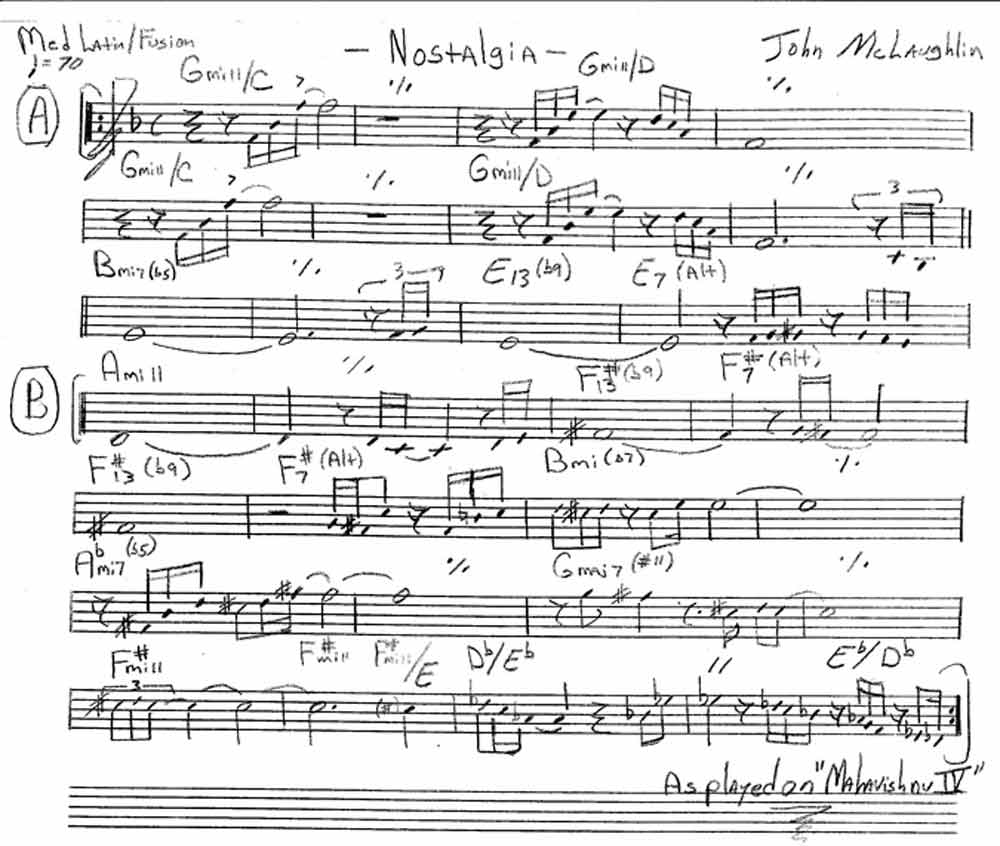 Med Latin/Fusion - Nostalgia - John McLaughlin
♩= 70
Gmi11/C 𝄎 Gmi11/D 𝄎
A
Gmi11/C 𝄎 Gmi11/D 𝄎
3
Bmi7(b5) 𝄎 3 E13(b9) E7(Alt)
B Ami11 𝄎 F#13(b9) F#7(Alt)
F#13(b9) F#7(Alt) Bmi(Δ7) 𝄎
Abmi7(b5) 𝄎 Gmaj7(#11) 𝄎
F#mi11 F#mi11 F#mi11/E Db/Eb 〃 Eb/Db
3
As played on "Mahavishnu IV"